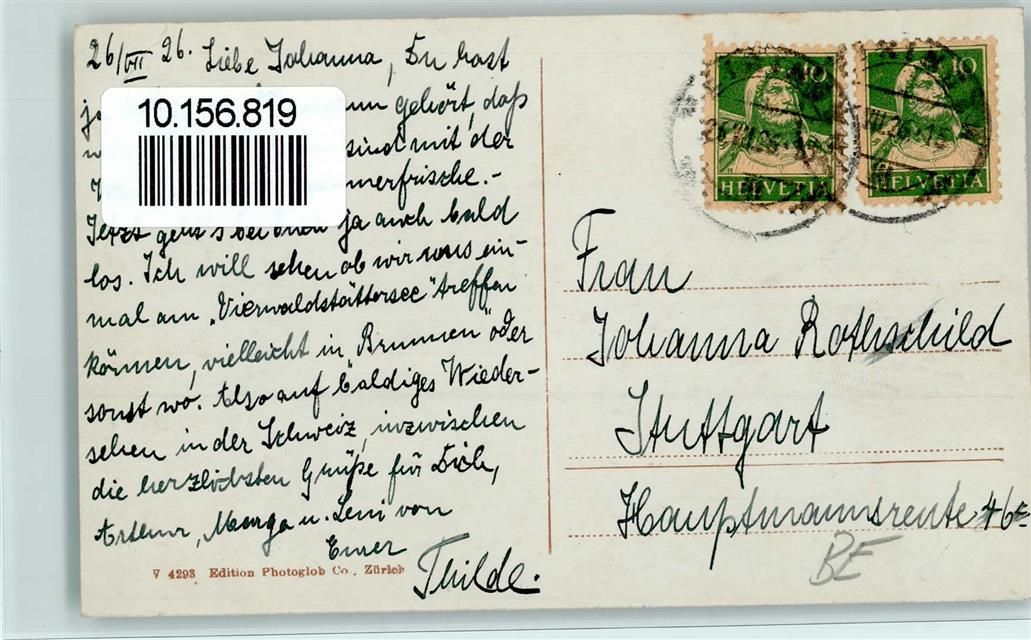 26/VII 26. Liebe Johanna, Du hast
10.156.819
gehört, daß
sind mit der
merfrische.-
Jetzt geht's bei Euch ja auch bald
los. Ich will sehen ob wir uns ein-
mal am "Vierwaldstättersee" treffen
können, vielleicht in "Brunnen" oder
sonst wo. Also auf baldiges Wieder-
sehen in der Schweiz, inzwischen
die herzlichsten Grüße für Dich,
u. Leni von
Euer
Thilde.
V 4293 Edition Photoglob Co., Zürich
10
HELVETIA
10
HELVETIA
Frau
Johanna Rothschild
Stuttgart
46
BE